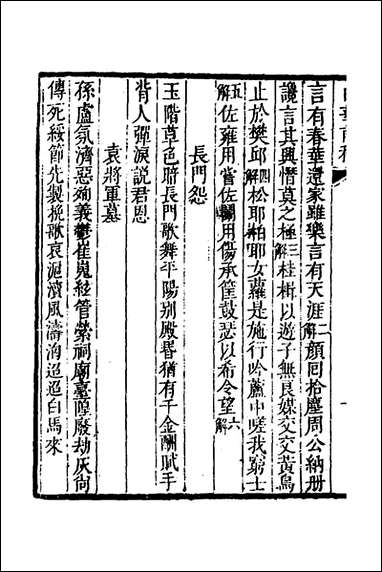 言有春華還家雖樂言有天涯二解顏回拾塵周公納册
讒言其興憯莫之極三解桂楫以遊子無良媒交交黃鳥
止於樊邱四解松耶柏耶女蘿是施行吟蘆中嗟我窮士
五解佐雍用嘗佐鬭用傷承筐鼓瑟以希令望六解
長門怨
玉階草色暗長門歌舞平陽别殿㫺猶有千金酬賦手
背人彈淚説君恩
袁將軍墓
孫盧氛濟惡殉義鬱崔嵬絃管縈祠廟臺隍廢劫灰尙
傳死綏節先製挽歌哀滬瀆風濤湧迢迢白馬來